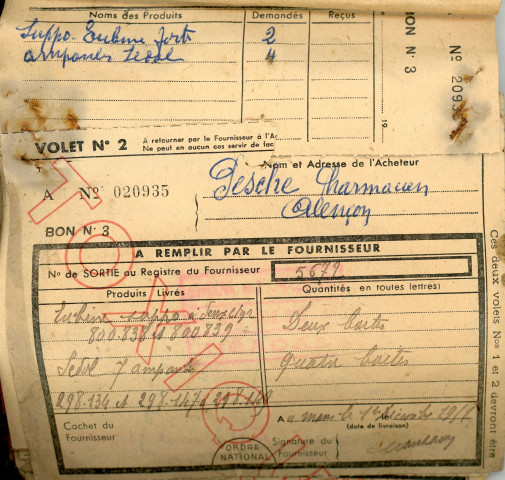 Noms des Produits Demandés Reçus
Suppo. Eubine forts 2
ampoules Sedol 4
BON N° 3
N° 2093
19
VOLET N° 2 A retourner par le Fournisseur à l'A
Ne peut en aucun cas servir de fac
Nom et Adresse de l'Acheteur
A N° 020935
Pesche Pharmacien
Alençon
BON N° 3
TOXIQ
A REMPLIR PAR LE FOURNISSEUR
N° de SORTIE au Registre du Fournisseur 5679
Produits Livrés Quantités en toutes lettres)
Eubine suppo
800.838 800.839 Deux boites
Sedol 7 ampoules Quatre boites
298.134 298.147
A Le mans le 1er décembre
(date de livraison)
Cachet du
Fournisseur
ORDRE
NATIONAL
Signature du
Fournisseur
Ces deux volets Nos 1 et 2 devront être